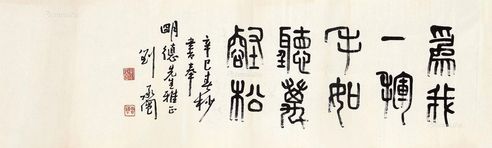 為我
一揮
手如
聽萬
壑松
辛巳春杪
書奉
明德先生雅正
劉